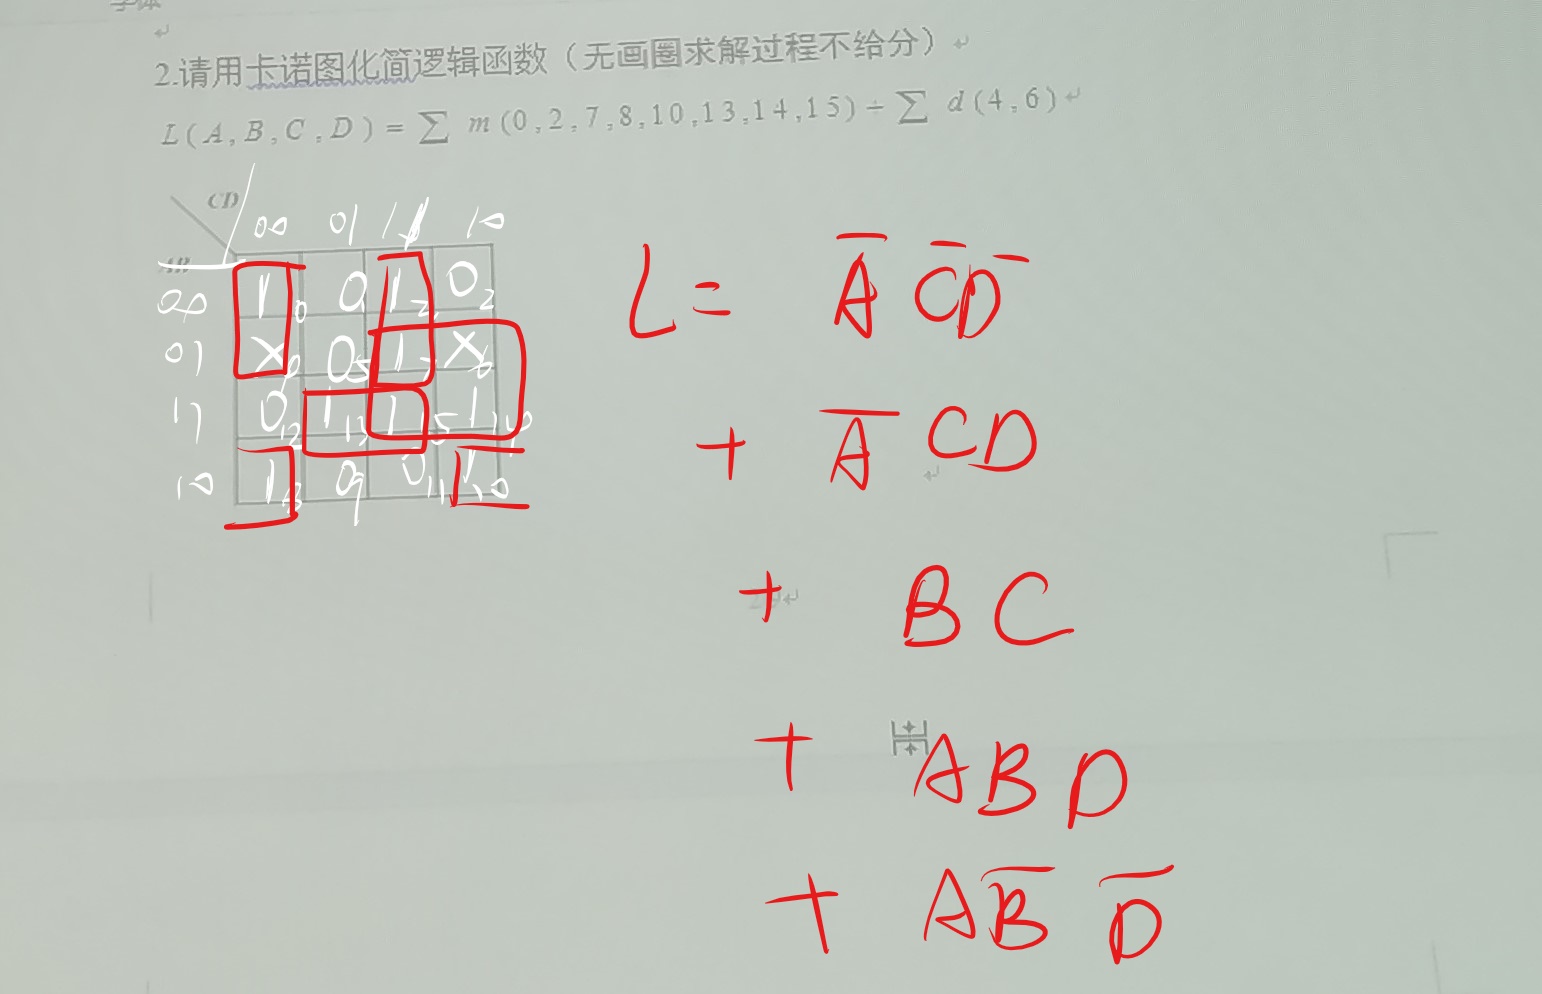 字体
2.请用卡诺图化简逻辑函数（无画圈求解过程不给分）
L(A,B,C,D)=∑ m(0,2,7,8,10,13,14,15)+∑ d(4,6)
CD
00 01 11 10
AB
00 1 0 0 1 1 2 0 2
01 X 0 5 1 7 X 6
11 0 12 1 13 1 15 1 14
10 1 8 0 9 0 11 1 10
L = A̅ C̅D̅
+ A̅ CD
+ BC
+ ABD
+ AB̅ D̅